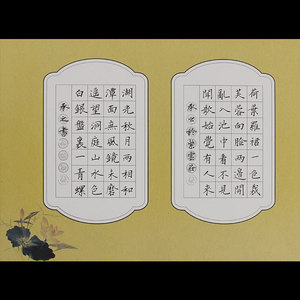 荷葉羅裙一色裁
芙蓉向臉兩邊開
亂入池中看不見
聞歌始覺有人來
湖光秋月兩相和
潭面無風鏡未磨
遥望洞庭山水色
白銀盤裏一青螺